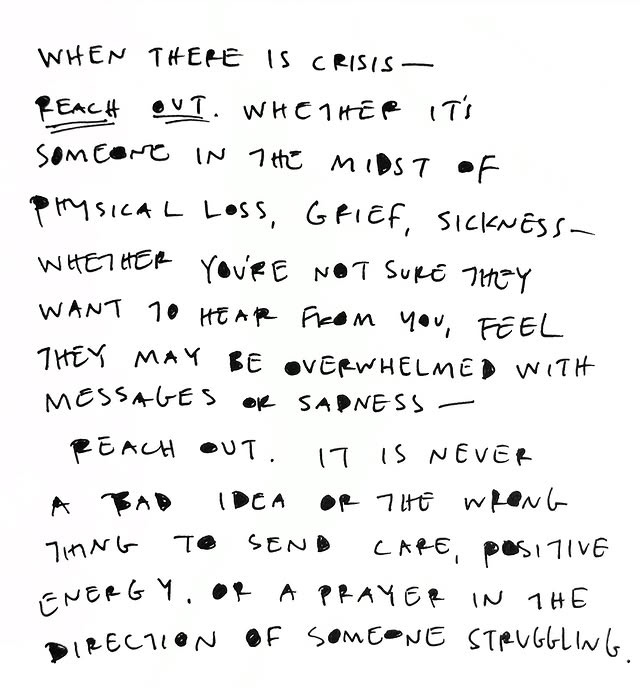 WHEN THERE IS CRISIS—
REACH OUT. WHETHER IT'S
SOMEONE IN THE MIDST OF
PHYSICAL LOSS, GRIEF, SICKNESS—
WHETHER YOU'RE NOT SURE THEY
WANT TO HEAR FROM YOU, FEEL
THEY MAY BE OVERWHELMED WITH
MESSAGES OR SADNESS—
REACH OUT. IT IS NEVER
A BAD IDEA OR THE WRONG
THING TO SEND CARE, POSITIVE
ENERGY. OR A PRAYER IN THE
DIRECTION OF SOMEONE STRUGGLING.